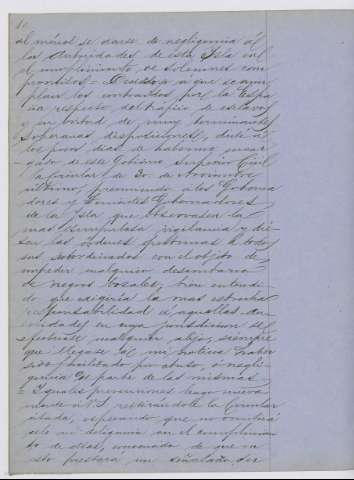 al menos se darse de negligencia á
las Autoridades de esta Isla en
el cumplimiento de solemnes com
promisos = Decidido á que se cum
plan los contraidos por la Espa
ña respecto del tráfico de esclavos
y en virtud de muy terminantes
Soberanas disposiciones, dirigí á
los pocos dias de haberme encar
gado de este Gobierno Superior Civil
la circular de 30 de Noviembre
último, previniendo á los Goberna
dores y Tenientes Gobernadores
de la Isla que observasen la
mas escrupulosa vigilancia y die
sen las órdenes oportunas á todos
sus subordinados con el objeto de
impedir cualquier desembarco
de negros bozales, bien entendi
do que exigiria la mas estrecha
responsabilidad á aquellas Au
toridades en cuya jurisdiccion se
efectuase cualquier alijo, siempre
que llegase á mi noticia haber
sido facilitado por abuso, ó negli
gencia de parte de las mismas
= Iguales prevenciones hago nueva
mente á V.S. reiterándole la Circular
citada, esperando que no omitirá
celo ni diligencia en el cumplimien
to de ellas, convencido de que en
esto prestará un señalado ser